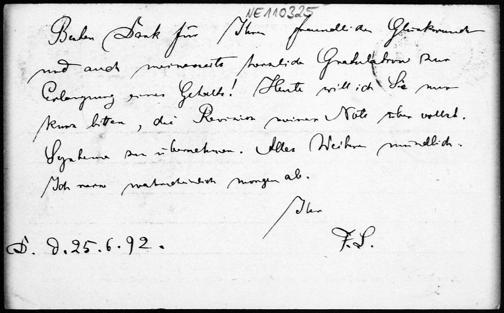 NE110325
Besten Dank für Ihren freundlichen Glückwunsch
und auch meinerseits herzliche Gratulation zur
Erlangung eines Gehalts! Heute will ich Sie nur
kurz bitten, die Revision meiner Note über vollst.
Systeme zu übernehmen. Alles Weitere mündlich.
Ich reise wahrscheinlich morgen ab.
Ihr
F. S.
D. d. 25. 6. 92.